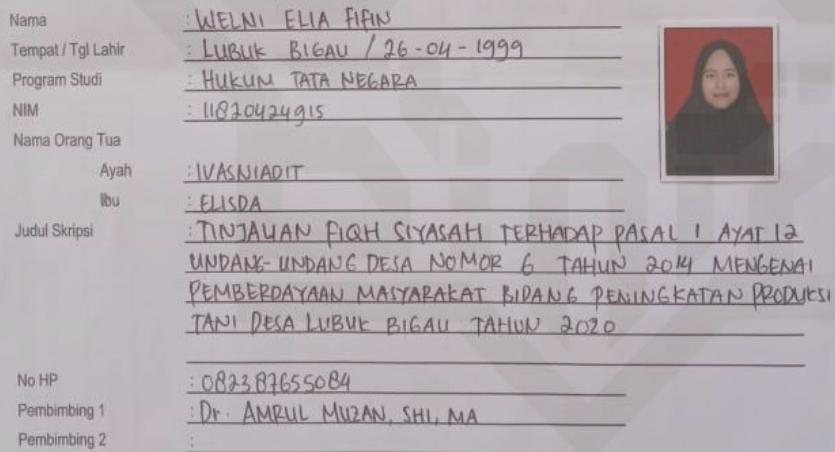 Nama : WELNI ELIA FIFIN
Tempat / Tgl Lahir : LUBUK BIGAU / 26-04-1999
Program Studi : HUKUM TATA NEGARA
NIM : 11820424915
Nama Orang Tua
Ayah : IVASNIADIT
Ibu : ELISDA
Judul Skripsi : TINJAUAN FIQH SIYASAH TERHADAP PASAL 1 AYAT 12
UNDANG-UNDANG DESA NOMOR 6 TAHUN 2014 MENGENAI
PEMBERDAYAAN MASYARAKAT BIDANG PENINGKATAN PRODUKSI
TANI DESA LUBUK BIGAU TAHUN 2020
No HP : 082387655084
Pembimbing 1 : Dr. AMRUL MUZAN, SHI, MA
Pembimbing 2 :